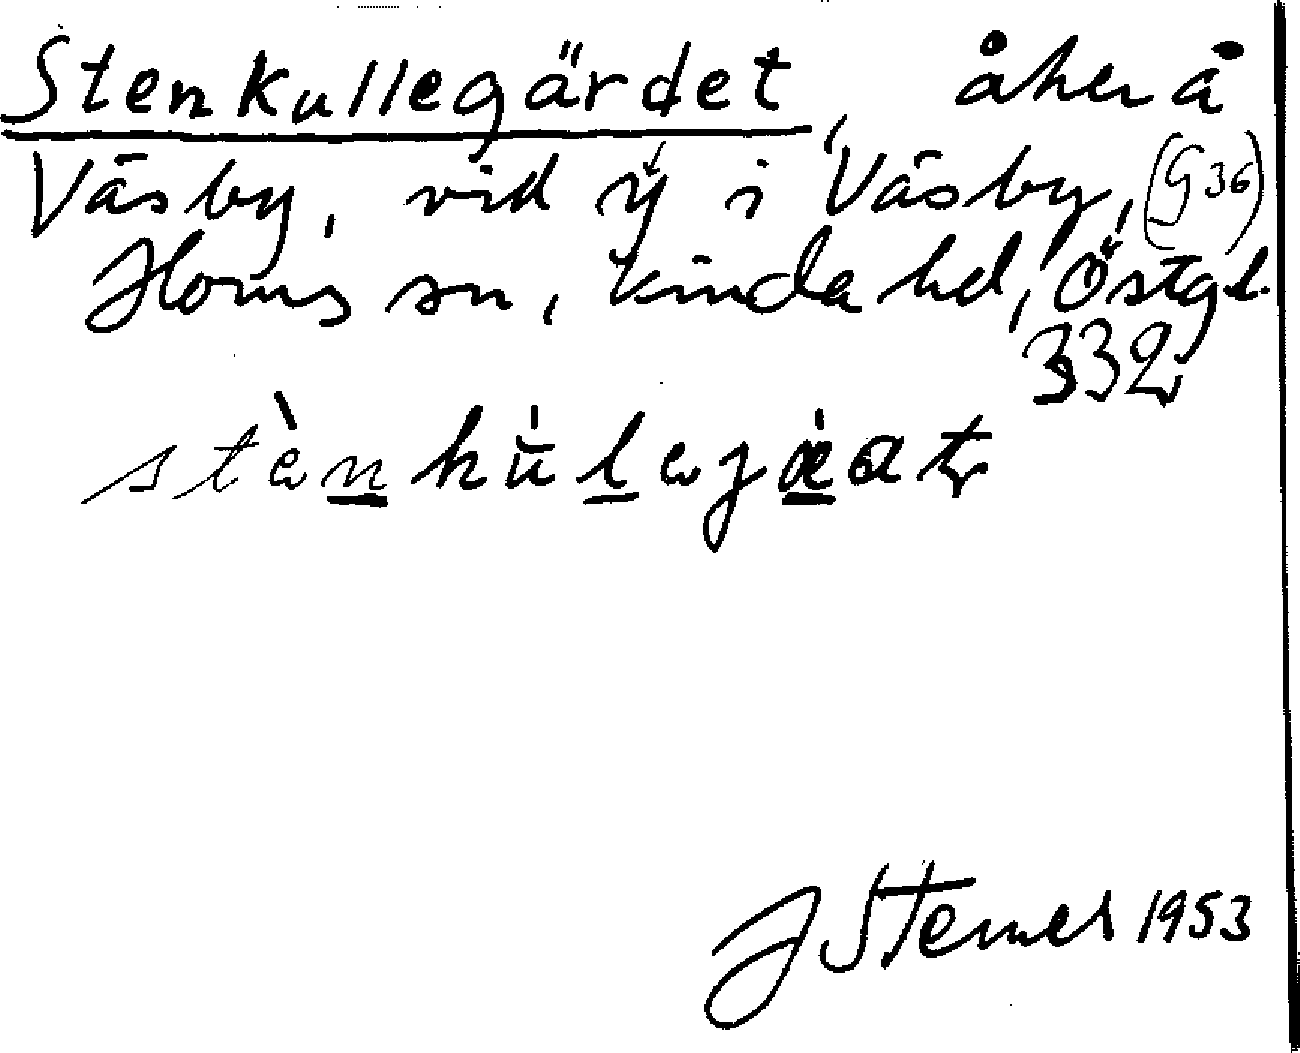 Stenkullegärdet, åker å
Väsby, vid y i Väsby, (G 36)
Horns sn, Kinda hd, Östgl.
332
stènku̇legæat
J Stemes 1953